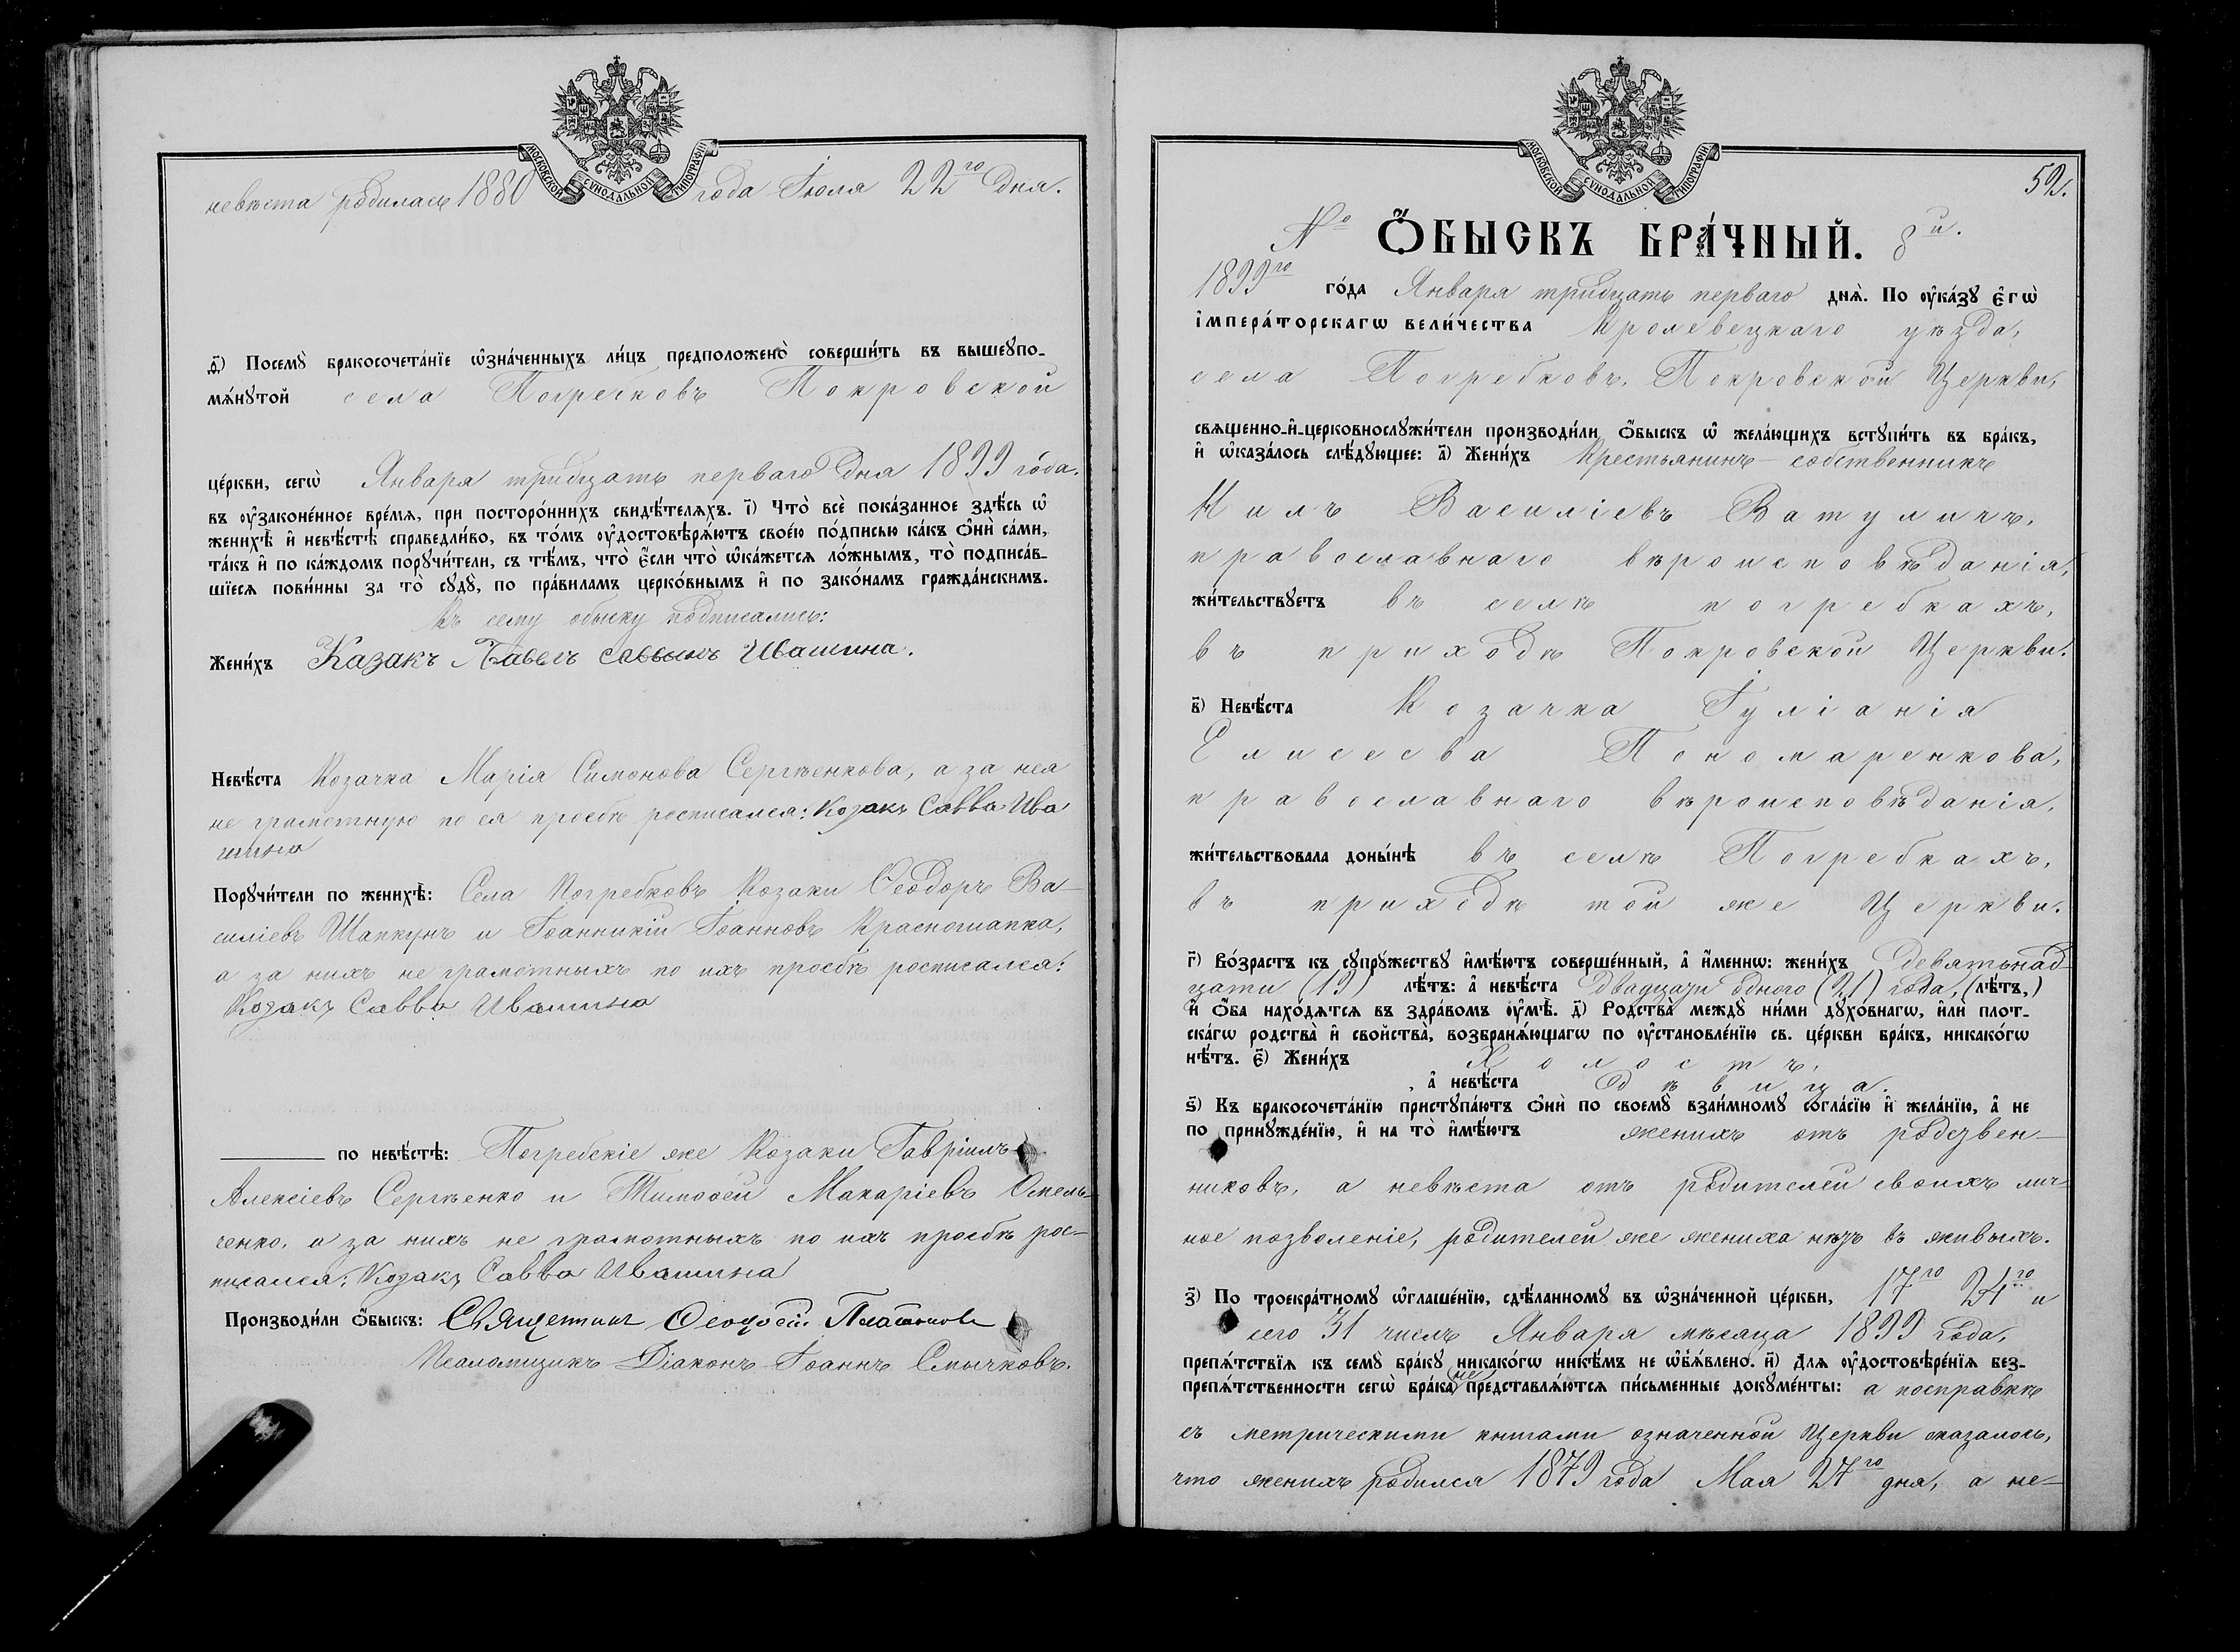 МОСКОВСКОЙ СѴНОДАЛЬНОЙ ТИПОГРАФІИ
невѣста родилась 1880 года Іюля 22го дня.
д҃) Посемꙋ̀ бракосочета́нїе ѡ҆зна́ченныхъ ли́цъ предположено̀ соверши́ть въ вышеꙋпо-
мѧ́нꙋтой села Погребковъ Покровской
це́ркви, сегѡ̀ Января тридцать перваго дня 1899 года.
въ ᲂу҆законе́нное вре́мѧ, при посторо́ннихъ свидѣ́телѧхъ. і҃) Что̀ всѐ пока́занное здѣ́сь ѡ҆
женихѣ̀ и҆ невѣ́стѣ справедли́во, въ то́мъ ᲂу҆достовѣрѧ́ютъ свое́ю по́дписью ка́къ ѻ҆нѝ са́ми,
та́къ и҆ по ка́ждомъ порꙋчи́тели, съ тѣ́мъ, что̀ є҆́сли что̀ ѡ҆ка́жется ло́жнымъ, то̀ подписа́в-
шїесѧ пови́нны за то̀ сꙋдꙋ̀, по пра́виламъ церко́внымъ и҆ по зако́намъ гражда́нскимъ.
Къ сему обыску подписались:
Жени́хъ Казакъ Павелъ Саввинъ Ивашина.
Невѣ́ста Козачка Марія Симонова Сергѣенкова, а за нея
не грамотную по ея просьбѣ росписался: Козакъ Савва Ива
шина
Порꙋчи́тели по женихѣ̀: Села Погребковъ Козаки Ѳеодоръ Ва-
силіевъ Шапкунъ и Іоанникій Іоанновъ Красношапка,
а за нихъ не грамотныхъ по ихъ просьбѣ росписался:
Козакъ Савва Ивашина
по невѣ́стѣ: Погребскіе же Козаки Гавріилъ
Алексіевъ Сергѣенко и Тимоѳей Макаріевъ Омель-
ченко, а за нихъ не грамотныхъ по ихъ просьбѣ рос-
писался: Козакъ Савва Ивашина
Производи́ли ѻ҆́быскъ: Священникъ Ѳеодосій
Псаломщикъ Діаконъ Іоаннъ Смычковъ.
МОСКОВСКОЙ СѴНОДАЛЬНОЙ ТИПОГРАФІИ
52.
№ Ѻ҆́БЫСКЪ БРА́ЧНЫЙ. 8й.
1899го го́да Января тридцать перваго днѧ̀. По ᲂу҆ка́зꙋ Є҆гѡ̀
і҆мпера́торскагѡ вели́чества Кролевецкаго уѣзда,
села Погребковъ, Покровской Церкви,
свѧщенно-и҆-церковнослꙋжи́тели производи́ли ѻ҆́быскъ ѡ҆ жела́ющихъ встꙋпи́ть въ бра́къ,
и҆ ѡ҆каза́лось слѣ́дꙋющее: а҃) Жени́хъ Крестьянинъ-собственникъ
Килъ Василіевъ Ватуличъ,
православнаго вѣроисповѣданія,
жи́тельствꙋетъ въ селѣ погребкахъ,
въ приходѣ Покровской Церкви.
в҃) Невѣ́ста Козачка Іуліанія
Елисеева Пономаренкова,
православнаго вѣроисповѣданія,
жи́тельствовала доны́нѣ въ селѣ Погребкахъ,
въ приходѣ той же Церкви.
г҃) Во́зрастъ къ сꙋпрꙋ́жествꙋ и҆мѣ́ютъ соверше́нный, а҆ и҆́меннѡ: жени́хъ девятьнад-
цати (19) лѣ́тъ: а҆ невѣ́ста двадцати одного (21) года, (лѣ́тъ,)
и҆ ѻ҆́ба нахо́дѧтсѧ въ здра́вомъ ᲂу҆мѣ̀. д҃) Родства̀ междꙋ̀ ни́ми дꙋхо́внагѡ, и҆лѝ плот-
ска́гѡ родства̀ и҆ свойства̀, возбранѧ́ющагѡ по ᲂу҆становле́нїю св. це́ркви бра́къ, никако́гѡ
нѣ́тъ. є҃) Жени́хъ Холостъ,
, а҆ невѣ́ста дѣвица.
ѕ҃) Къ бракосочета́нїю пристꙋпа́ютъ ѻ҆нѝ по своемꙋ̀ взаи́мномꙋ согла́сїю и҆ жела́нїю, а҆ не
по принꙋжде́нїю, и҆ на то̀ и҆мѣ́ютъ женихъ отъ родствен-
никовъ, а невѣста отъ родителей своихъ лич-
ное позволеніе, родителей же жениха нѣтъ въ живыхъ.
з҃) По троекра́тномꙋ ѡ҆глаше́нїю, сдѣ́ланномꙋ въ ѡ҆зна́ченной це́ркви, 17го 24го и
сего 31 числъ Января мѣсяца 1899 года,
препѧ́тствїѧ къ семꙋ̀ бра́кꙋ никако́гѡ никѣ́мъ не ѡ҆б̾ѧ́влено. и҃) Длѧ ᲂу҆достовѣре́нїѧ без-
препѧ́тственности сегѡ̀ бра́ка не представлѧ́ются пи́сьменные докꙋме́нты: а посправкѣ
съ метрическими книгами означенной Церкви оказалось,
что женихъ родился 1879 года Мая 27го дня, а не-